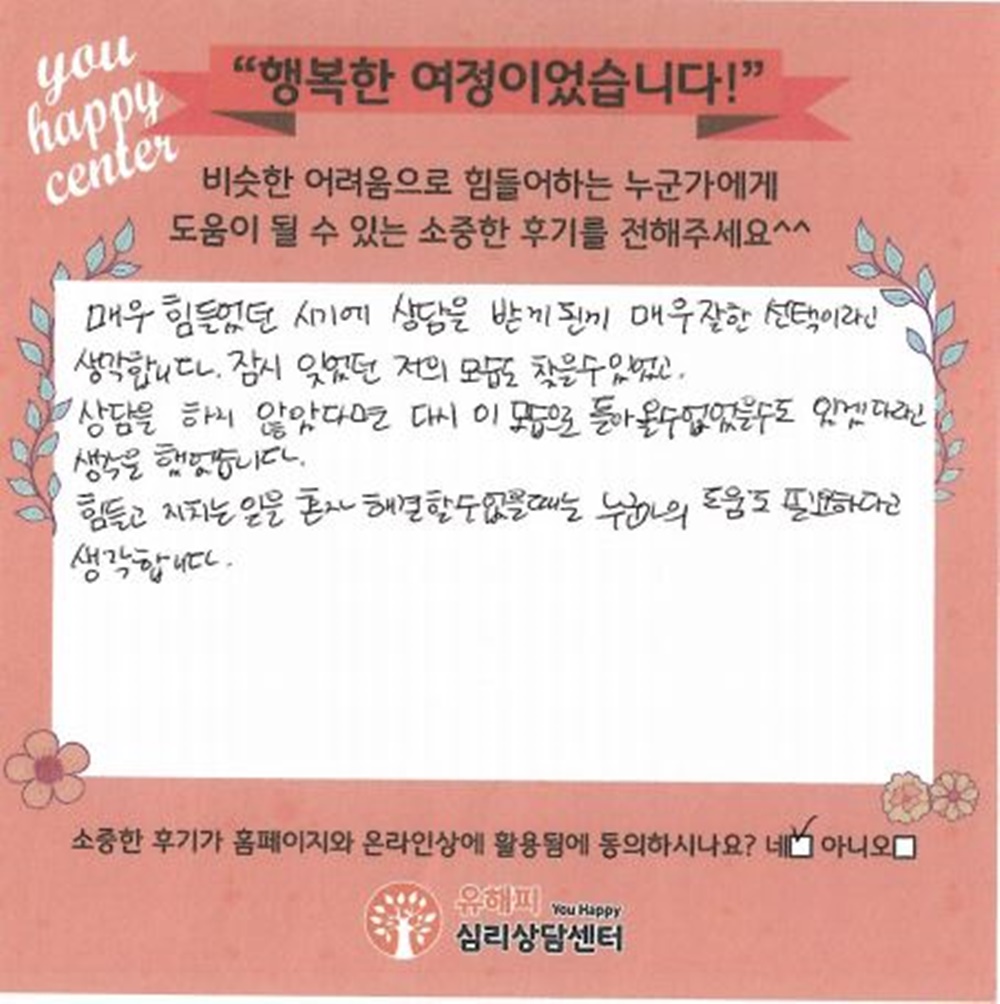 you
happy
center
“행복한 여정이었습니다!”
비슷한 어려움으로 힘들어하는 누군가에게
도움이 될 수 있는 소중한 후기를 전해주세요^^
매우 힘들었던 시기에 상담을 받게 된게 매우 잘한 선택이라고
생각합니다. 잠시 잊었던 저의 모습도 찾을수 있었고.
상담을 하지 않았다면 다시 이 모습으로 돌아올수 없었을수도 있겠다라는
생각을 했었습니다.
힘들고 지치는 일을 혼자 해결할수 없을때는 누군가의 도움도 필요하다고
생각합니다.
소중한 후기가 홈페이지와 온라인상에 활용됨에 동의하시나요? 네 아니오
유해피 You Happy
심리상담센터